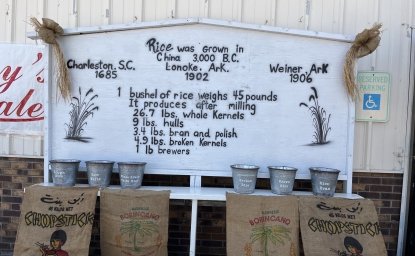 Rice was grown in
China 3,000 B.C.
Charleston, S.C.
1685
Lonoke, Ark.
1902
Weiner, Ark
1906
1 bushel of rice weighs 45 pounds
It produces after milling
26.7 lbs. whole Kernels
9 lbs. hulls
3.4 lbs. bran and polish
4.9 lbs. broken Kernels
1 lb brewers
y's
ale
RESERVED
PARKING
أبو بنت
CHOPSTICK
BOBINCANO
BOBINCANO
أبو بنت
CHOPSTICK